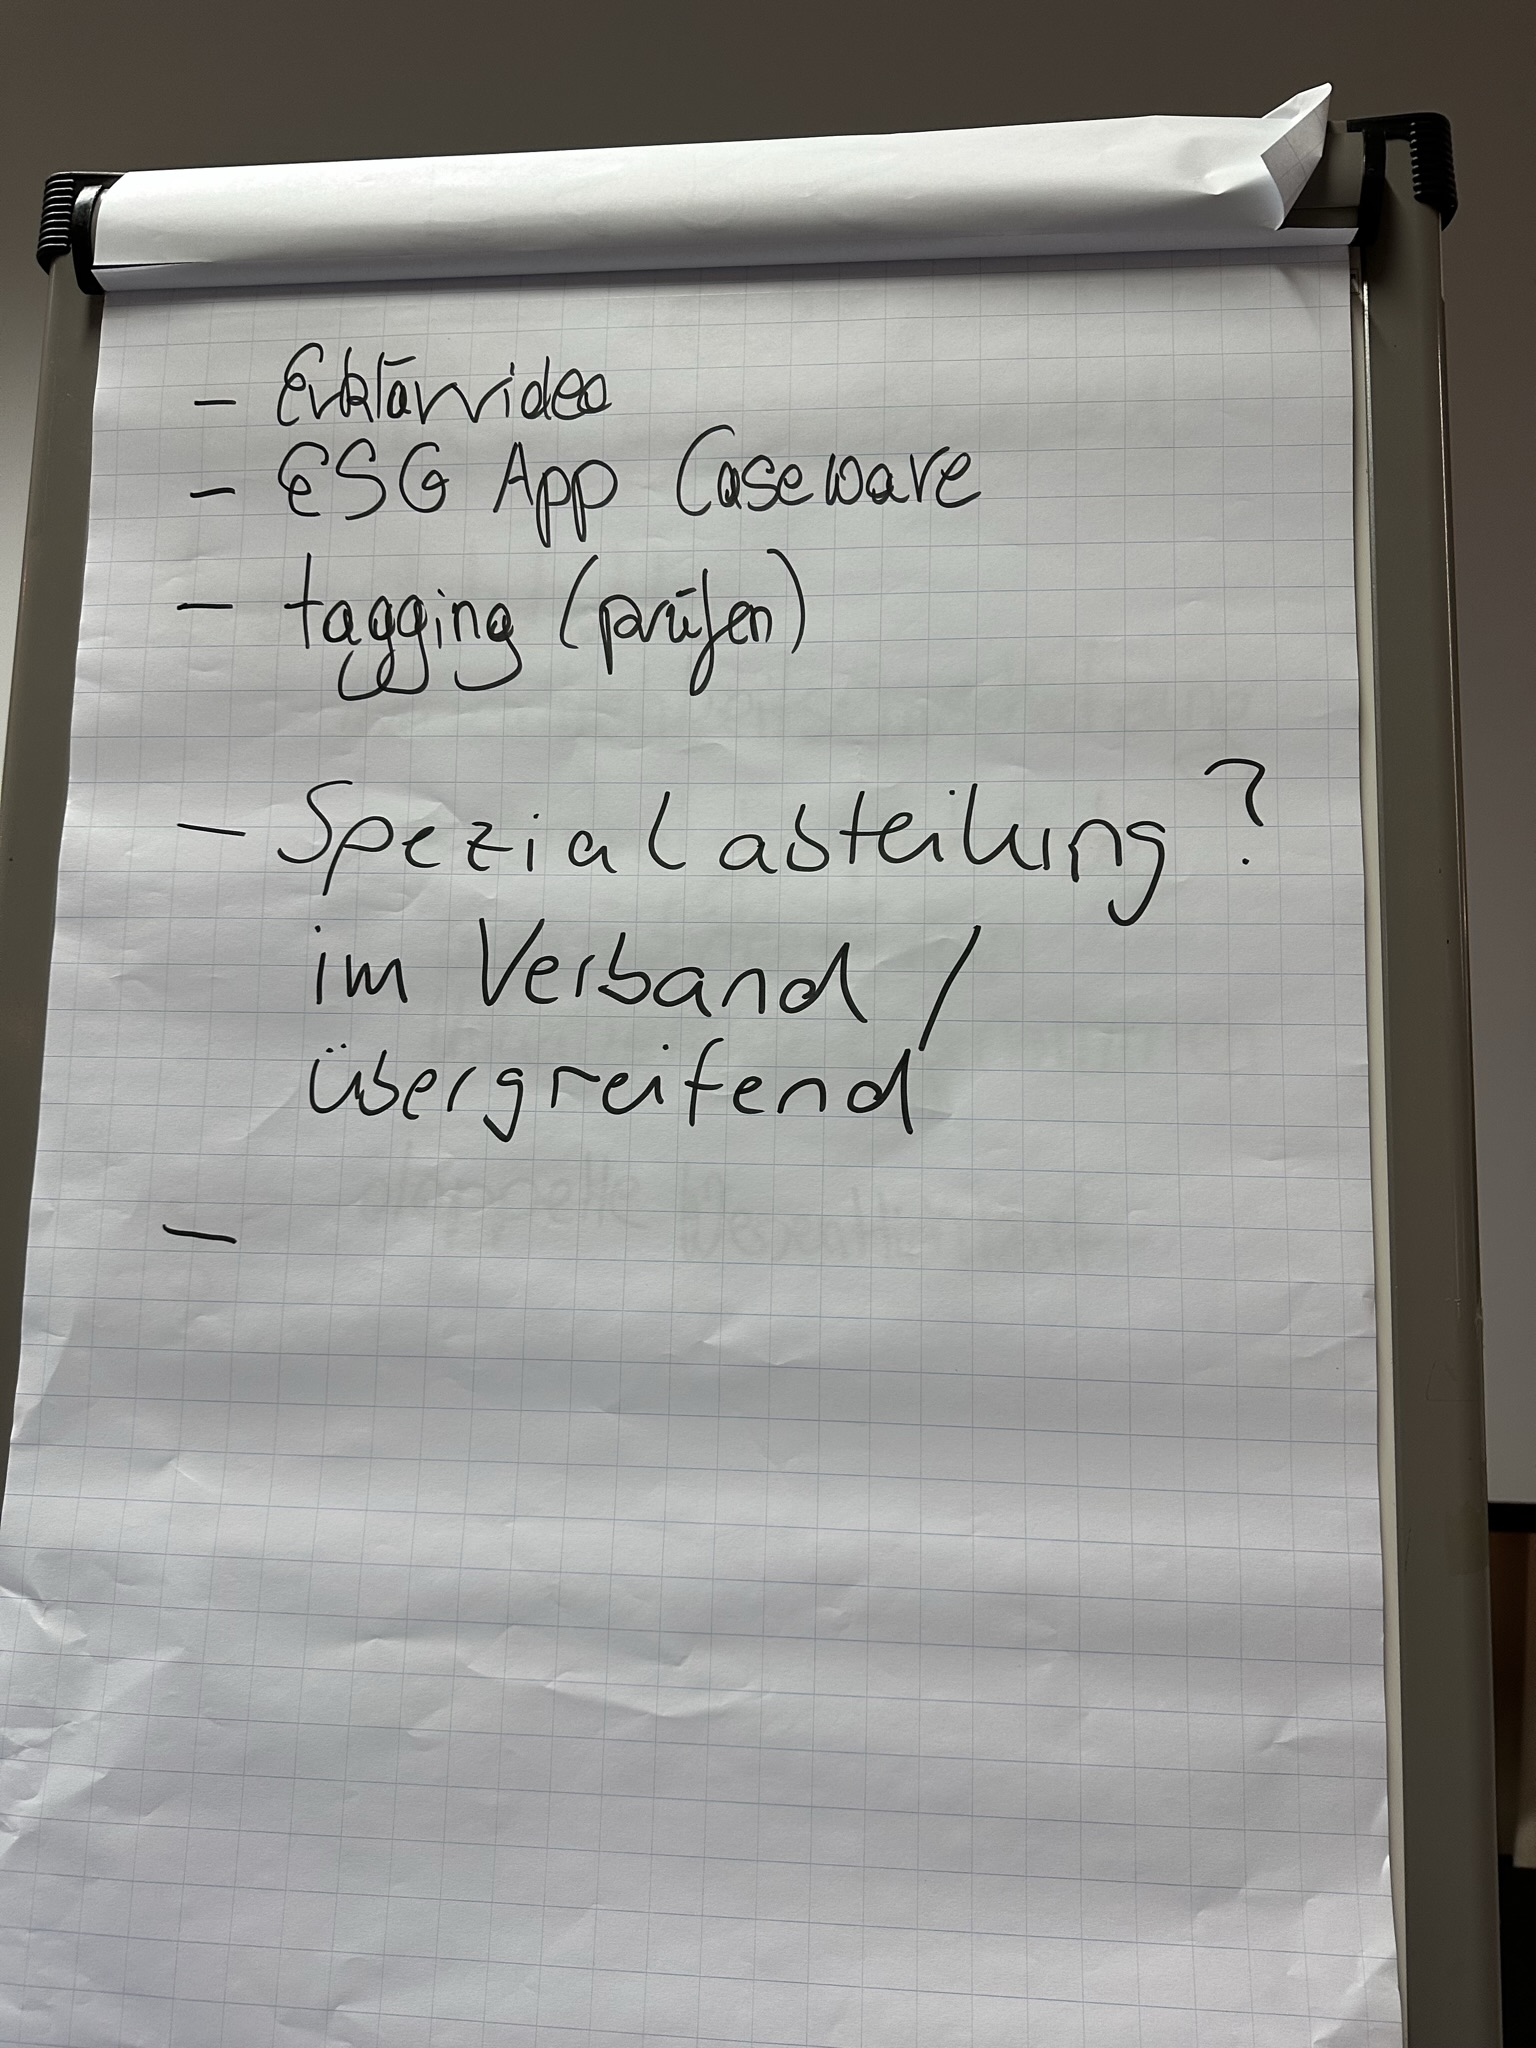 - Erklärvideo
- ESG App Caseware
- tagging (prüfen)
- Spezialabteilung?
im Verband /
übergreifend
-